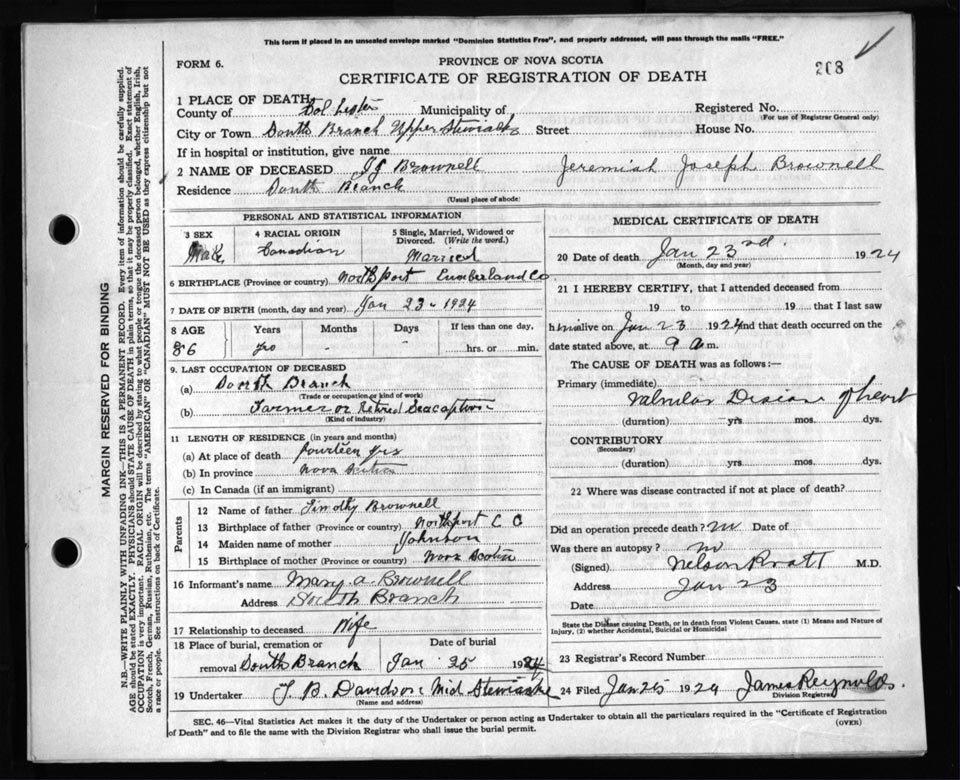 This form if placed in an unsealed envelope marked "Dominion Statistics Free", and properly addressed, will pass through the mails "FREE."
FORM 6.
PROVINCE OF NOVA SCOTIA
CERTIFICATE OF REGISTRATION OF DEATH
208
1 PLACE OF DEATH
County of Municipality of
Registered No.
(For use of Registrar General only)
City or Town South Branch Upper Stewiacke Street House No.
If in hospital or institution, give name
2 NAME OF DECEASED Brownell Jeremiah Joseph Brownell
Residence South Branch
(Usual place of abode)
PERSONAL AND STATISTICAL INFORMATION
3 SEX
Male
4 RACIAL ORIGIN
Canadian
5 Single, Married, Widowed or Divorced. (Write the word.)
Married
6 BIRTHPLACE (Province or country) Northport Cumberland Co
7 DATE OF BIRTH (month, day and year) Jan 23 1924
8 AGE Years Months Days If less than one day,
86 yrs - - hrs. or min.
9. LAST OCCUPATION OF DECEASED
(a) South Branch
(Trade or occupation or kind of work)
(b) Farmer or Retired
(Kind of industry)
11 LENGTH OF RESIDENCE (in years and months)
(a) At place of death fourteen yrs
(b) In province Nova Scotia
(c) In Canada (if an immigrant)
Parents
12 Name of father Timothy Brownell
13 Birthplace of father (Province or country) Northport C C
14 Maiden name of mother Johnson
15 Birthplace of mother (Province or country) Nova Scotia
16 Informant's name Mary a. Brownell
Address South Branch
17 Relationship to deceased Wife
18 Place of burial, cremation or removal South Branch
Date of burial
Jan 25 1924
19 Undertaker Davidson Mid Stewiacke
(Name and address)
MEDICAL CERTIFICATE OF DEATH
20 Date of death Jan 23rd 1924
(Month, day and year)
21 I HEREBY CERTIFY, that I attended deceased from
19 to 19 that I last saw
him alive on Jan 23 1924 and that death occurred on the
date stated above, at 9 a m.
The CAUSE OF DEATH was as follows:—
Primary (immediate)
Valvular of heart
(duration) yrs. mos. dys.
CONTRIBUTORY
(Secondary)
(duration) yrs. mos. dys.
22 Where was disease contracted if not at place of death?
Did an operation precede death? no Date of
Was there an autopsy? no
(Signed) Nelson Pratt M.D.
Address Jan 23
Date
State the Disease causing Death, or in death from Violent Causes, state (1) Means and Nature of
Injury, (2) whether Accidental, Suicidal or Homicidal
23 Registrar's Record Number
24 Filed Jan 25 1924 James Reynolds.
Division Registrar
SEC. 46—Vital Statistics Act makes it the duty of the Undertaker or person acting as Undertaker to obtain all the particulars required in the "Certificate of Registration
of Death" and to file the same with the Division Registrar who shall issue the burial permit.
(OVER)
MARGIN RESERVED FOR BINDING
N.B.—WRITE PLAINLY WITH UNFADING INK—THIS IS A PERMANENT RECORD. Every item of information should be carefully supplied.
AGE should be stated EXACTLY. PHYSICIANS should STATE CAUSE OF DEATH in plain terms, so that it may be properly classified. Exact statement of
OCCUPATION is very important. RACIAL ORIGIN will be described by stating to what people or tongue the deceased person belonged, whether English, Irish,
Scotch, French, German, Russian, Ruthenian, etc. The terms "AMERICAN" OR "CANADIAN" MUST NOT BE USED as they express citizenship but not
a race or people. See instructions on back of Certificate.